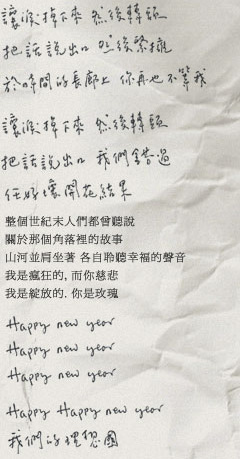 讓淚掉下來 然後轉頭
把話說出口 然後緊擁
於時間的長廊上 你再也不等我
讓淚掉下來 然後轉頭
把話說出口 我們錯過
任好壞開花結果
整個世紀末人們都曾聽說
關於那個角落裡的故事
山河並肩坐著 各自聆聽幸福的聲音
我是瘋狂的, 而你慈悲
我是綻放的. 你是玫瑰
Happy new year
Happy new year
Happy new year
Happy Happy new year
我們的理想國